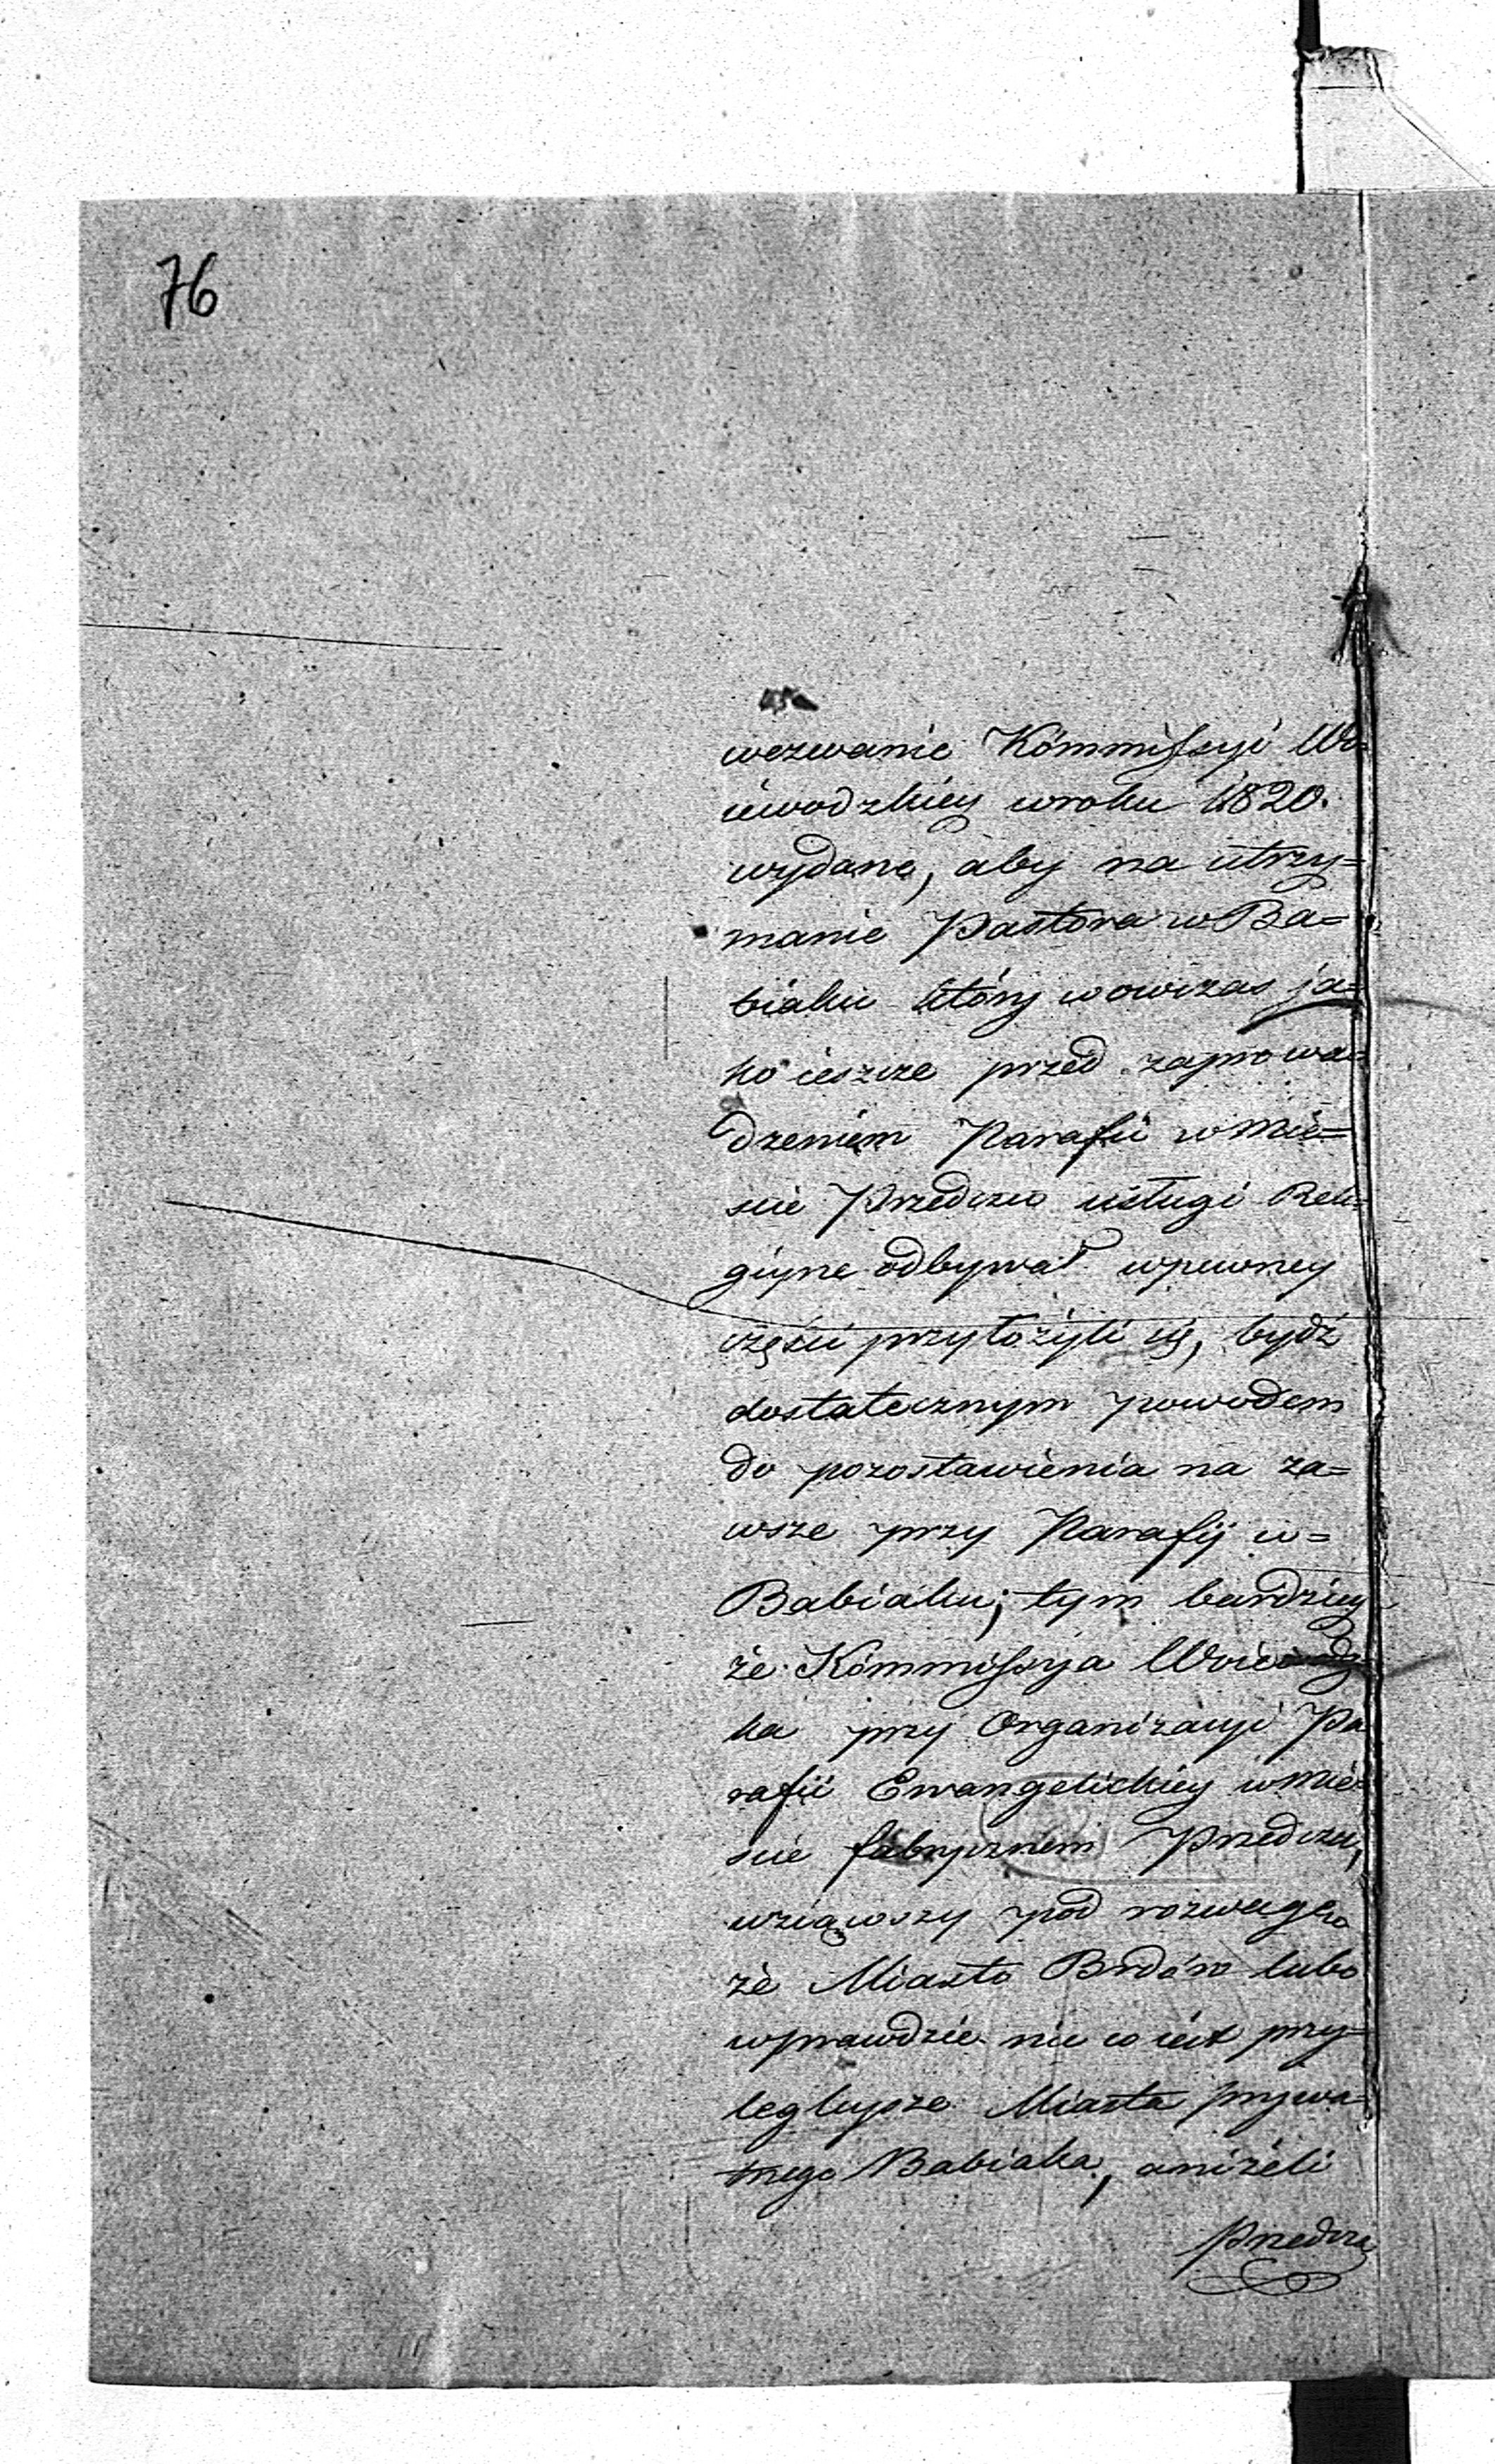 76
wezwanie Kómmissyi Wo=
iewodzkiey wroku 1820.
wydane, aby na utrzy=
manie Pastora w Ba=
biaku który wowczas ja=
ko ieszcze przed zaprowa=
dzeniem Parafii w mie=
scie Przedczu usługi Reli=
giyne odbywał wpewney
części przyłożyli się, bydź
dostatecznym powodem
do pozostawienia na za=
wsze przy Parafij w=
Babiaku; tym bardziey
że Kómmissya Woiewodz
ka przy Organizacyi Pa
rafii Ewangelickiey w mie=
scie fabrycznem Przedczu,
wziąwszy pod rozwagę
że Miasto Brdów lubo
wprawdzie nieco iest przy=
legleysze Miasta prywa=
tnego Babiaka, aniżeli
Przedcza